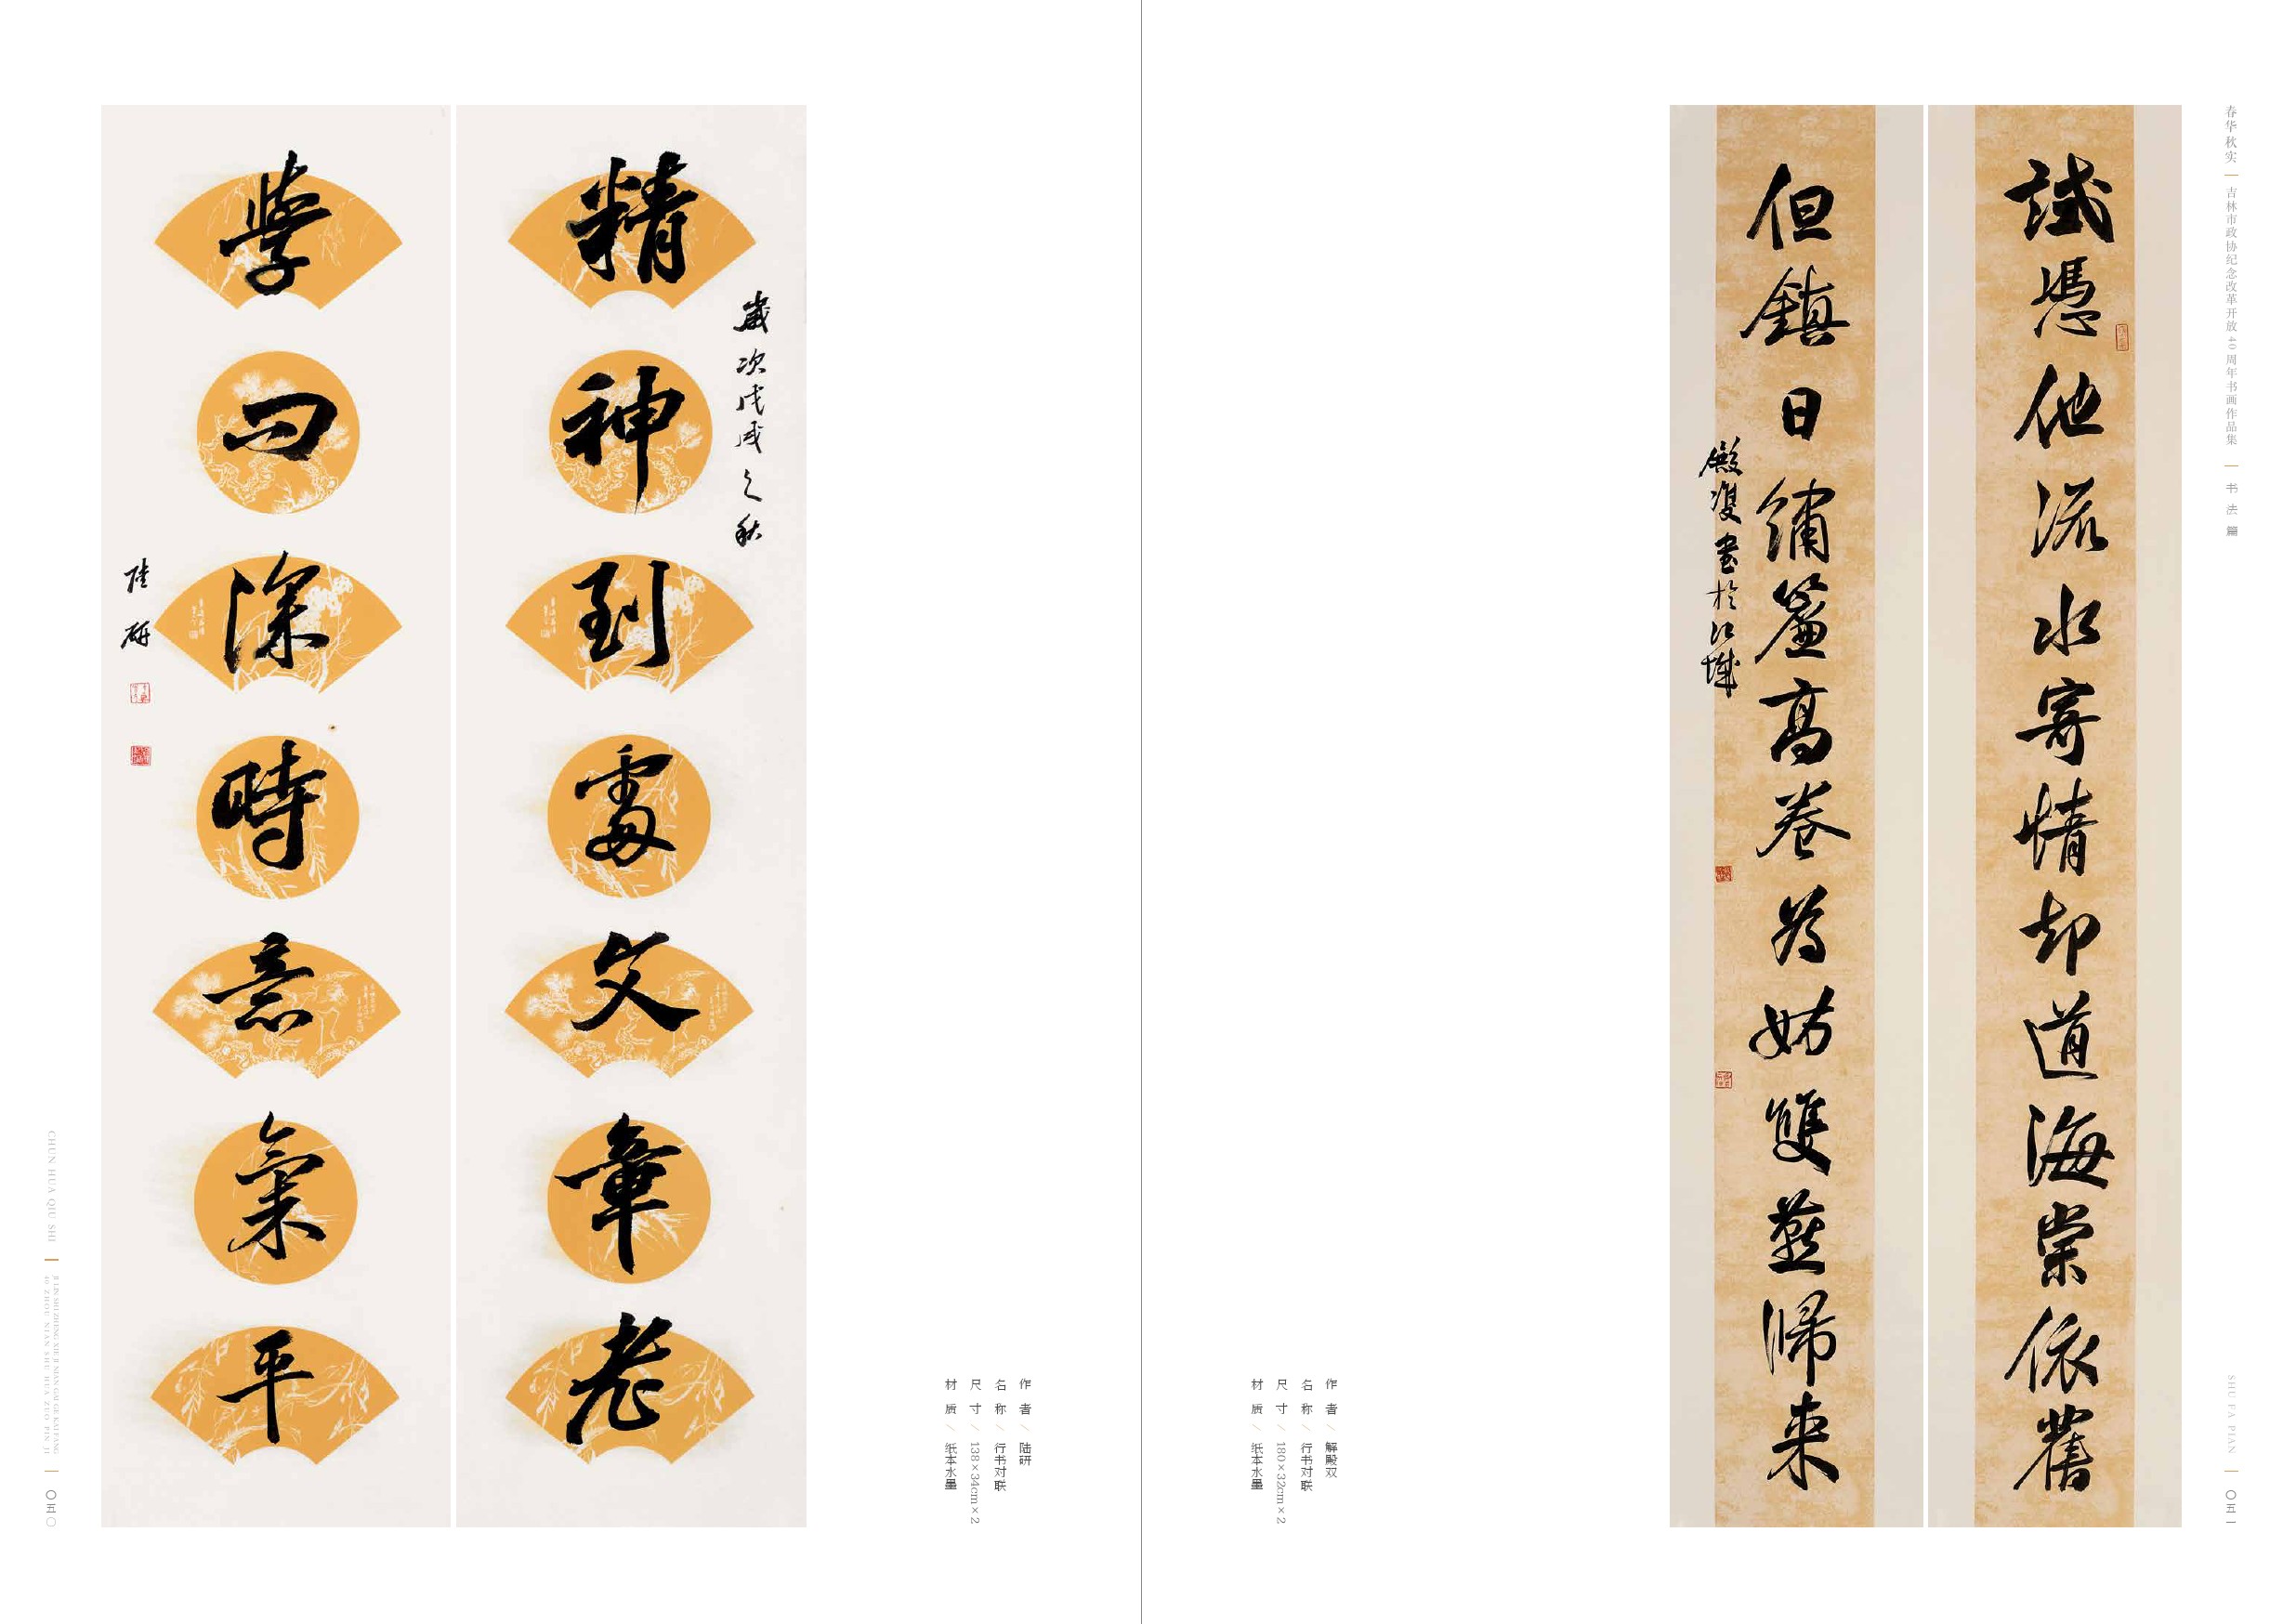 精神到處文章老
歲次戊戌之秋
學問深時意氣平
陸研
作者／陆研
名称／行书对联
尺寸／138×34cm×2
材质／纸本水墨
CHUN HUA QIU SHI
JI LIN SHI ZHENG XIE JI NIAN GAI GE KAI FANG
40 ZHOU NIAN SHU HUA ZUO PIN JI
〇五〇
試憑他流水寄情却道海棠依舊
但鎮日繡簾高卷為妨雙燕歸来
殿雙書於江城
作者／解殿双
名称／行书对联
尺寸／180×32cm×2
材质／纸本水墨
春华秋实
吉林市政协纪念改革开放40周年书画作品集
书法篇
SHU FA PIAN
〇五一